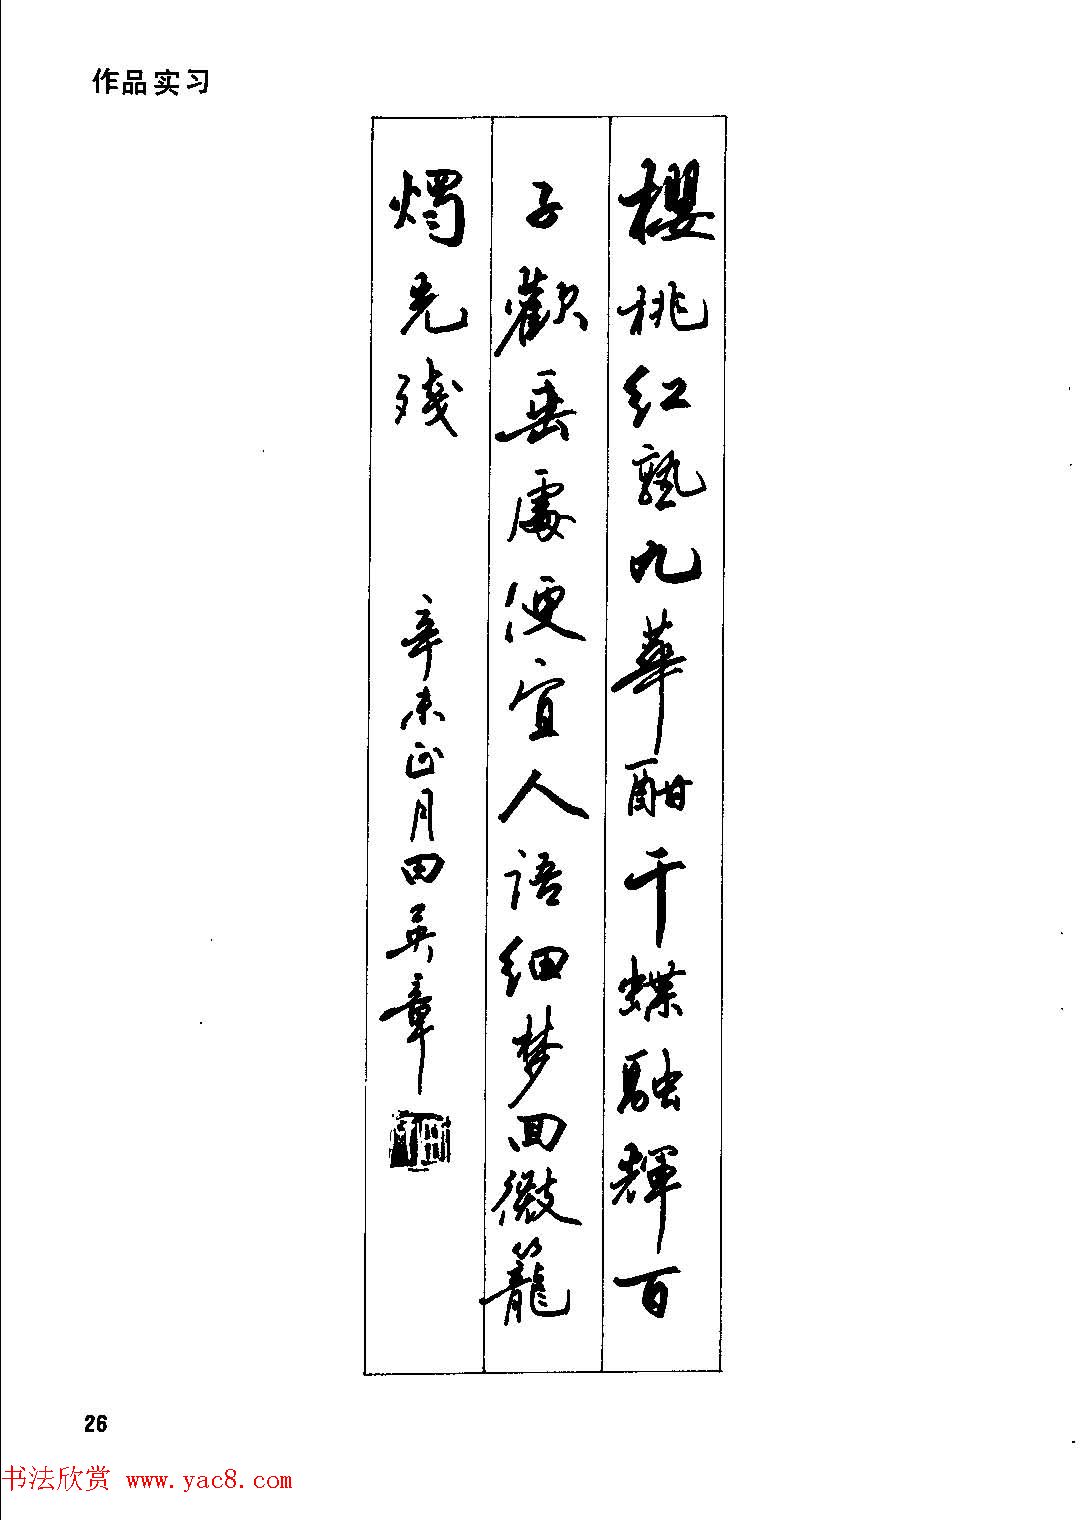 作品实习
櫻桃红熟九華酣千蝶融輝百
子歡垂處便宜人語细梦回微籠
烛光残
辛未正月田英章
26
书法欣赏 www.yac8.com